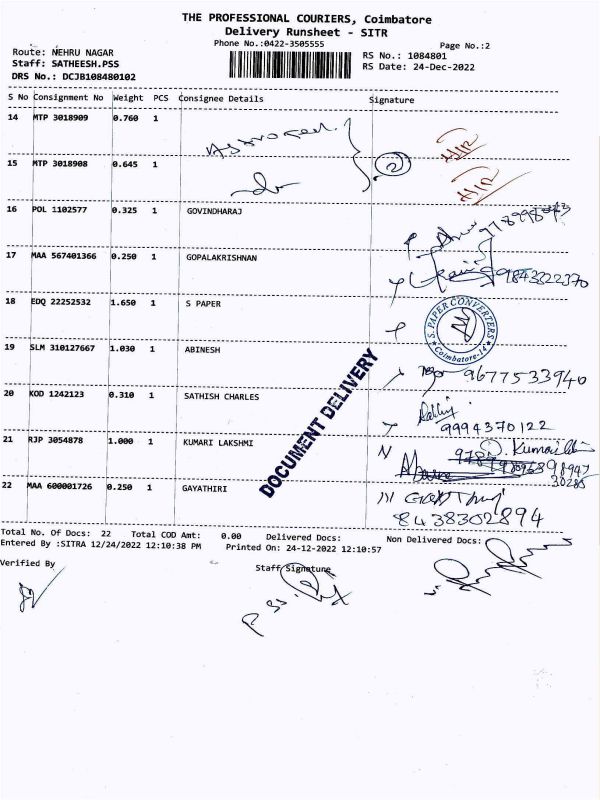 THE PROFESSIONAL COURIERS, Coimbatore
Delivery Runsheet - SITR
Phone No.:0422-3505555
Page No.:2
Route: NEHRU NAGAR
RS No.: 1084801
Staff: SATHEESH.PSS
RS Date: 24-Dec-2022
DRS No.: DCJB108480102
S No Consignment No Weight PCS Consignee Details Signature
14 MTP 3018909 0.760 1
15 MTP 3018908 0.645 1
2
16 POL 1102577 0.325 1 GOVINDHARAJ
17 MAA 567401366 0.250 1 GOPALAKRISHNAN
9984322370
18 EDQ 22252532 1.650 1 S PAPER
S. PAPER CONVERTERS
Coimbatore-14
19 SLM 310127667 1.030 1 ABINESH
9677533940
20 KOD 1242123 0.310 1 SATHISH CHARLES
9994370122
21 RJP 3054878 1.000 1 KUMARI LAKSHMI
DOCUMENT DELIVERY
22 MAA 600001726 0.250 1 GAYATHIRI
8438302894
Total No. Of Docs: 22 Total COD Amt: 0.00 Delivered Docs: Non Delivered Docs:
Entered By :SITRA 12/24/2022 12:10:38 PM Printed On: 24-12-2022 12:10:57
Verified By
Staff Signature